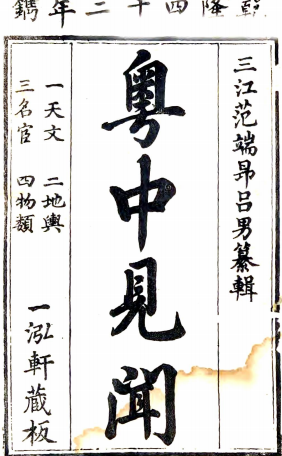 乾隆四十二年鐫
三江范端昂呂男纂輯
粵中見聞
一天文　二地輿
三名宦　四物類
一泓軒藏板